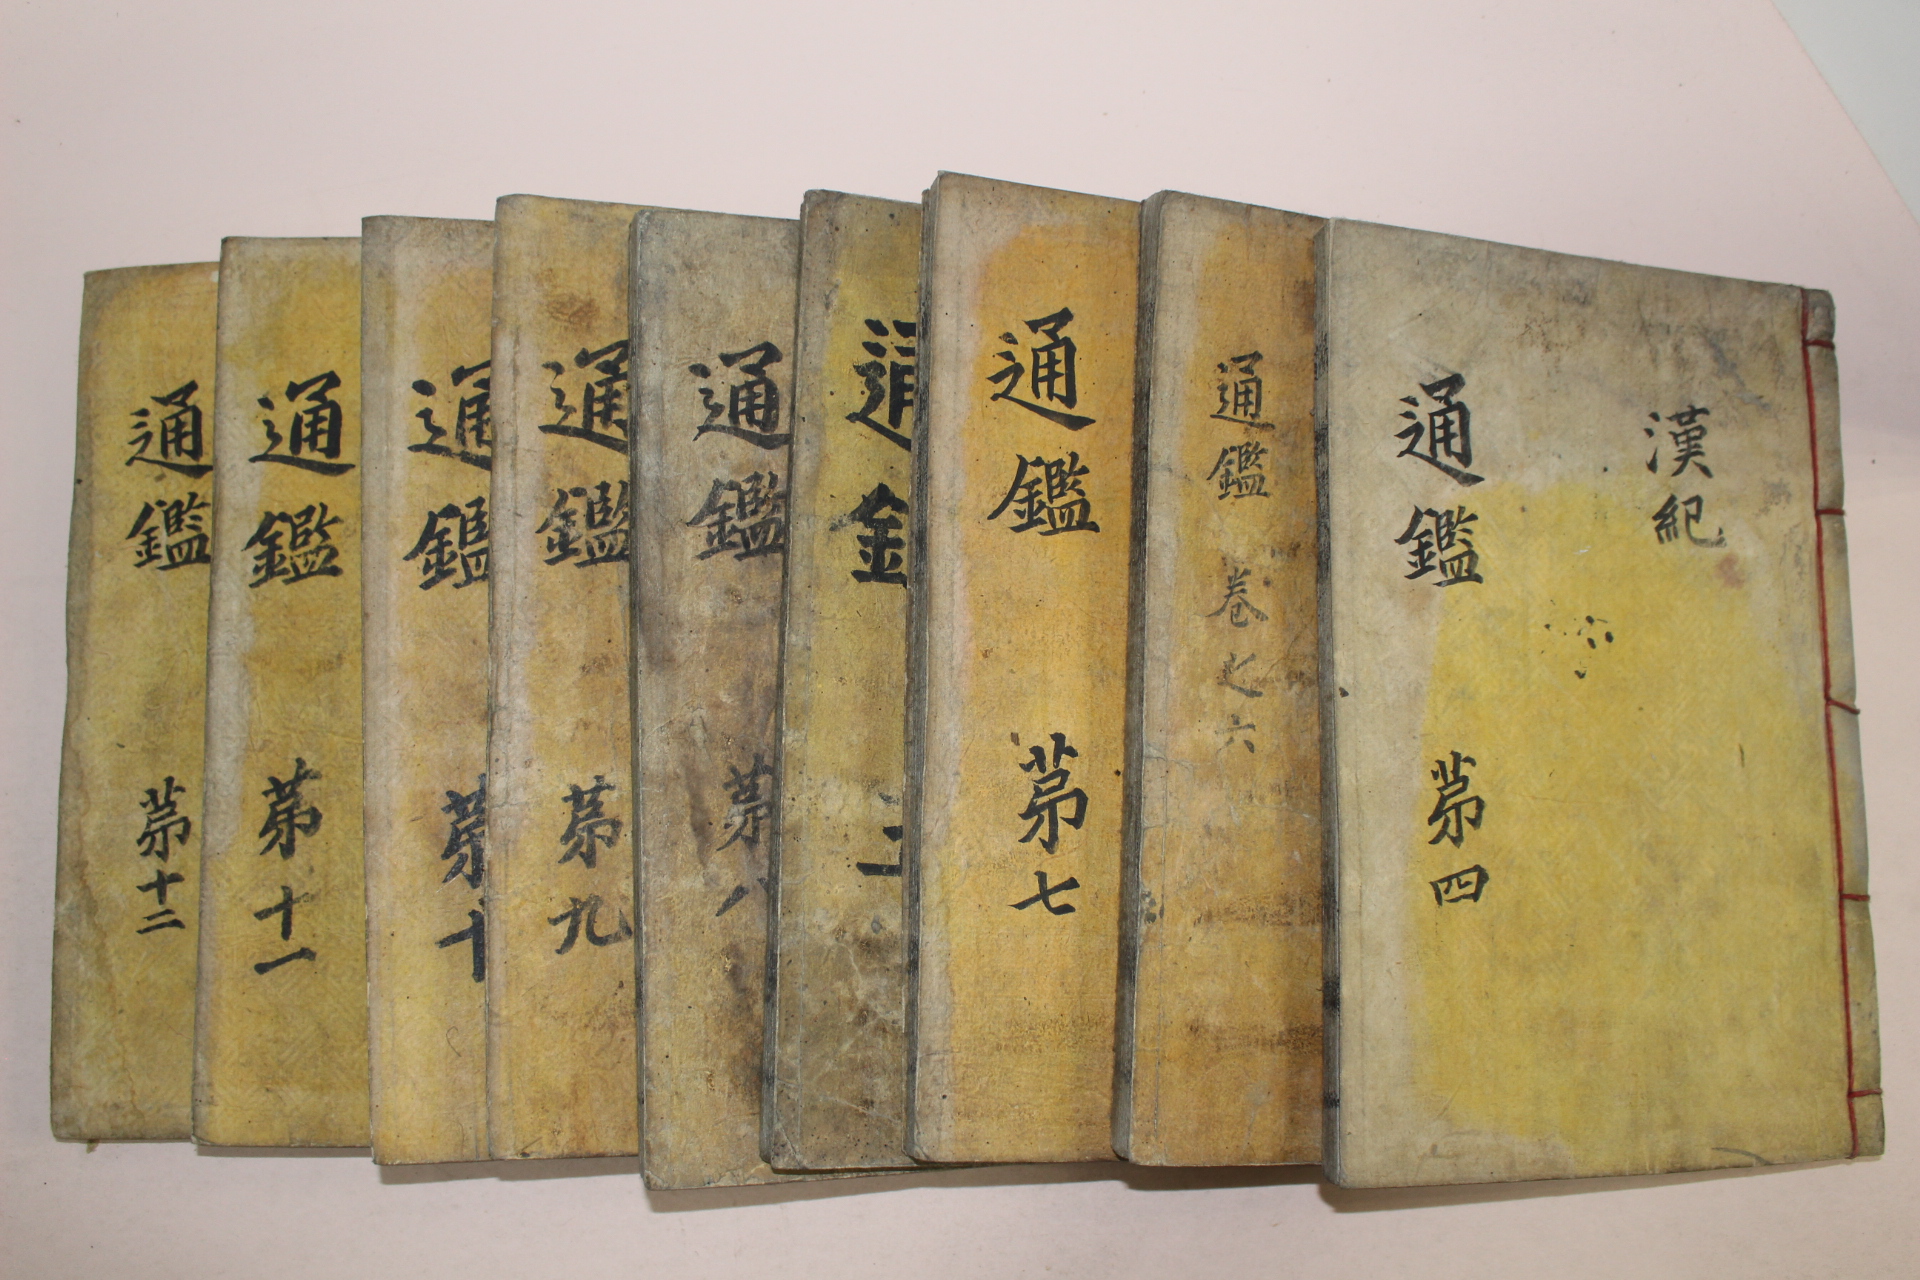 漢紀
通鑑 第四
通鑑 卷之六
通鑑 第七
通鑑
通鑑 第八
通鑑 第九
通鑑 第十
通鑑 第十一
通鑑 第十二